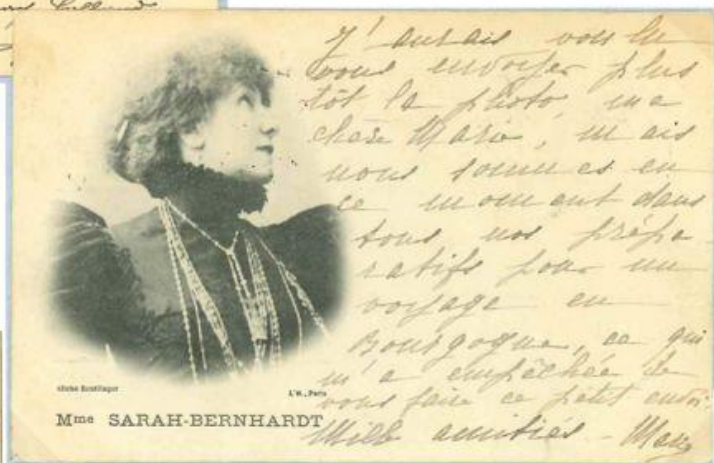 J'aurais voulu
vous envoyer plus
tôt la photo, ma
chère Marie, mais
nous sommes en
ce moment dans
tous nos prépa-
ratifs pour un
voyage en
Bourgogne, ce qui
m'a empêchée de
vous faire ce petit envoi.
Mille amitiés - 
cliché Reutlinger
Paris
Mme SARAH-BERNHARDT